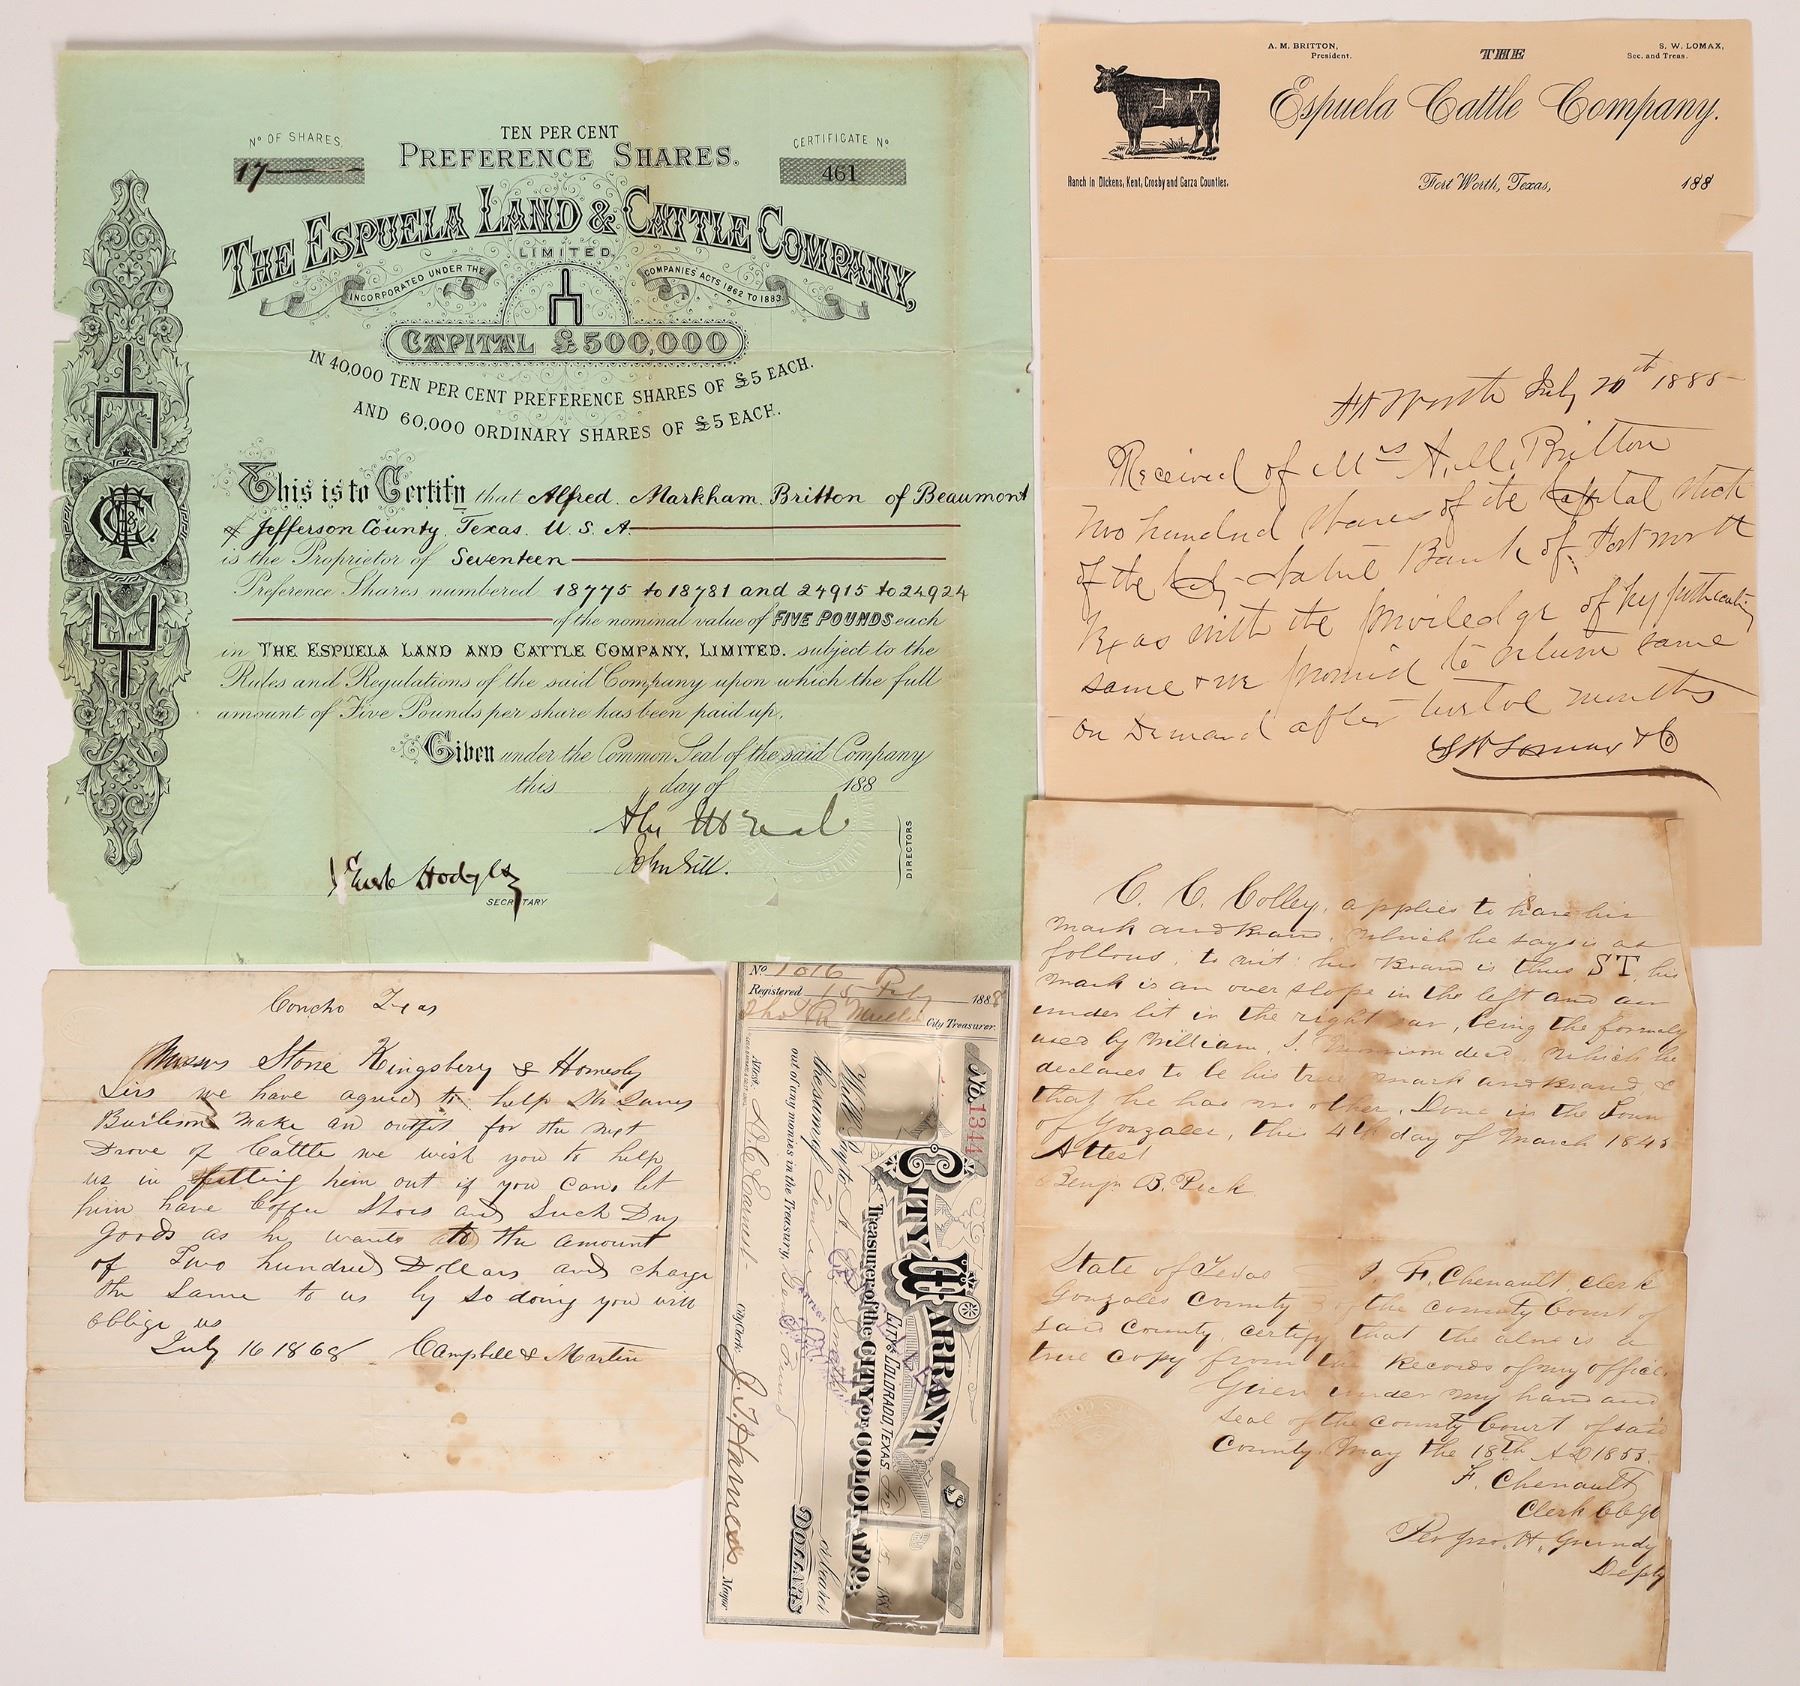 No OF SHARES
17
TEN PER CENT
PREFERENCE SHARES.
CERTIFICATE No
461
THE ESPUELA LAND & CATTLE COMPANY,
LIMITED.
INCORPORATED UNDER THE COMPANIES ACTS 1862 TO 1883
CAPITAL £500,000
IN 40,000 TEN PER CENT PREFERENCE SHARES OF £5 EACH.
AND 60,000 ORDINARY SHARES OF £5 EACH.
This is to Certify that Alfred Markham Britton of Beaumont
Jefferson County, Texas. U. S. A.
is the Proprietor of Seventeen
Preference Shares numbered 18775 to 18781 and 24915 to 24924
of the nominal value of FIVE POUNDS each
in THE ESPUELA LAND AND CATTLE COMPANY, LIMITED. subject to the
Rules and Regulations of the said Company upon which the full
amount of Five Pounds per share has been paid up.
Given under the Common Seal of the said Company
this day of 188
John Gill.
DIRECTORS
SECRETARY
A. M. BRITTON,
President.
THE
S. W. LOMAX,
Sec. and Treas.
Espuela Cattle Company.
Ranch in Dickens, Kent, Crosby and Garza Counties.
Fort Worth, Texas, 188
Ft Worth July 20th 1885
Received of A. M. Britton
Two hundred shares of the Capital stock
of the City National Bank of Fort Worth
Texas with the priviledge of hypothecating
same & we promise to return same
on Demand after twelve months
S W Lomax & Co
Concho Texas
Messrs Stone Kingsbery & Hornesby
Sirs we have agreed to help Mr James
Burleson make an outfit for the next
Drove of Cattle we wish you to help
us in fitting him out if you can, let
him have Coffee Stors and Such Dry
goods as he wants to the amount
of Two hundred Dollars and charge
the Same to us by so doing you will
oblige us
July 16 1868 Campbell & Martin
No 1016
Registered 15 Feby 1888
City Treasurer.
No. 1344
CITY WARRANT
CITY COLORADO, TEXAS,
188
Treasurer of the CITY OF COLORADO:
Will Pay to
or bearer
the sum of
DOLLARS
out of any monies in the Treasury,
Attest.
City Clerk
Mayor
C. C. Colley, applies to have his
mark and brand, which he says is as
follows, to wit: his Brand is thus ST, his
mark is an over slope in the left and an
under bit in the right ear, being the formerly
used by William, which he
declares to be his true mark and brand, &
that he has no other, Done in the Town
of Gonzales, this 4th day of March 184
Attest
Benjn B. Peck
State of Texas
Gonzales County
I F. Chenault, clerk
of the county Court of
said County, certify that the above is a
true copy from the Records of my office
Given under my hand and
seal of the County Court of said
County, May the 18th AD 1855
F. Chenault
Clerk
Per Jno. H. Grundy
Depty